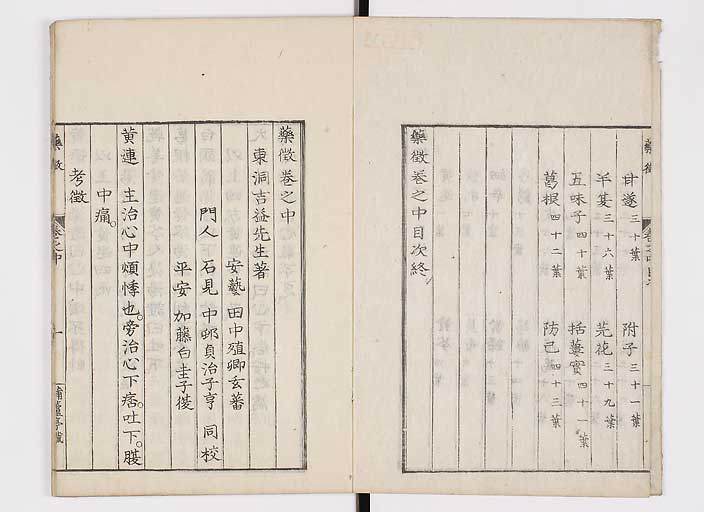 甘遂三十葉 附子三十一葉
半夏三十六葉 芫花三十九葉
五味子四十葉 括蔞實四十一葉
葛根四十二葉 防己四十三葉
藥徵卷之中目次終
藥徵卷之中
東洞吉益先生著
安藝 田中殖卿玄蕃
門人 石見 中邨貞治子亨 同校
平安 加藤白圭子復
黃連 主治心中煩悸也。旁治心下痞。吐下。腹
中痛。
考徵
藥徵
卷之中
一